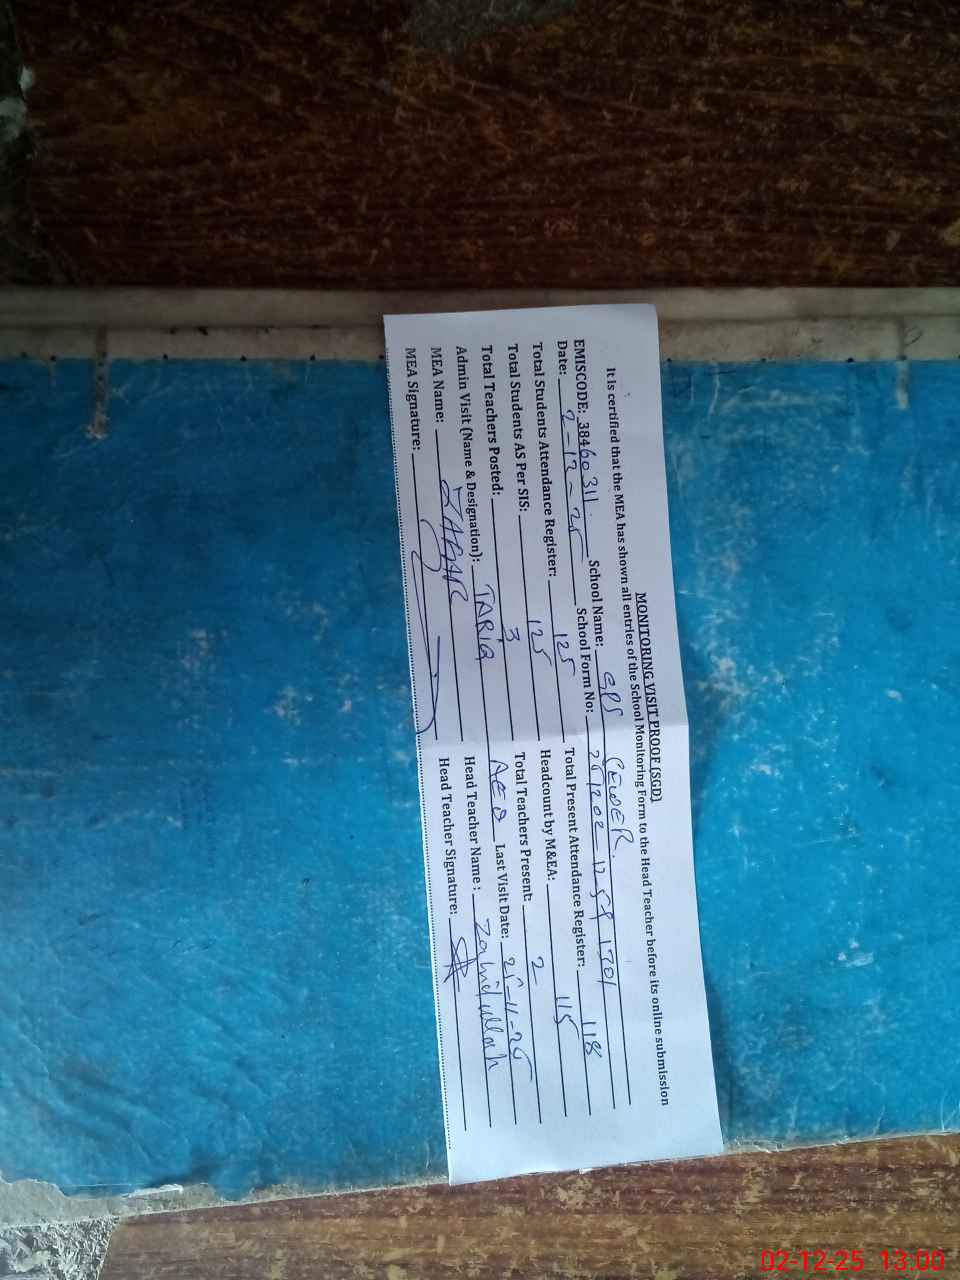 MONITORING VISIT PROOF (SGD)
It Is certified that the MEA has shown all entries of the School Monitoring Form to the Head Teacher before its online submission
EMISCODE: 38460311. School Name: GPS
Date: 2-12-25 School Form No:
Total Students Attendance Register: 125 Total Present Attendance Register: 118
Total Students AS Per SIS: 125 Headcount by M&EA: 115
Total Teachers Posted: 3 Total Teachers Present: 2
Admin Visit (Name & Designation): TARiQ AEO Last Visit Date: 25-11-25
MEA Name: ZAFAR Head Teacher Name: Zahidullah
MEA Signature: Head Teacher Signature:
02-12-25 13:00